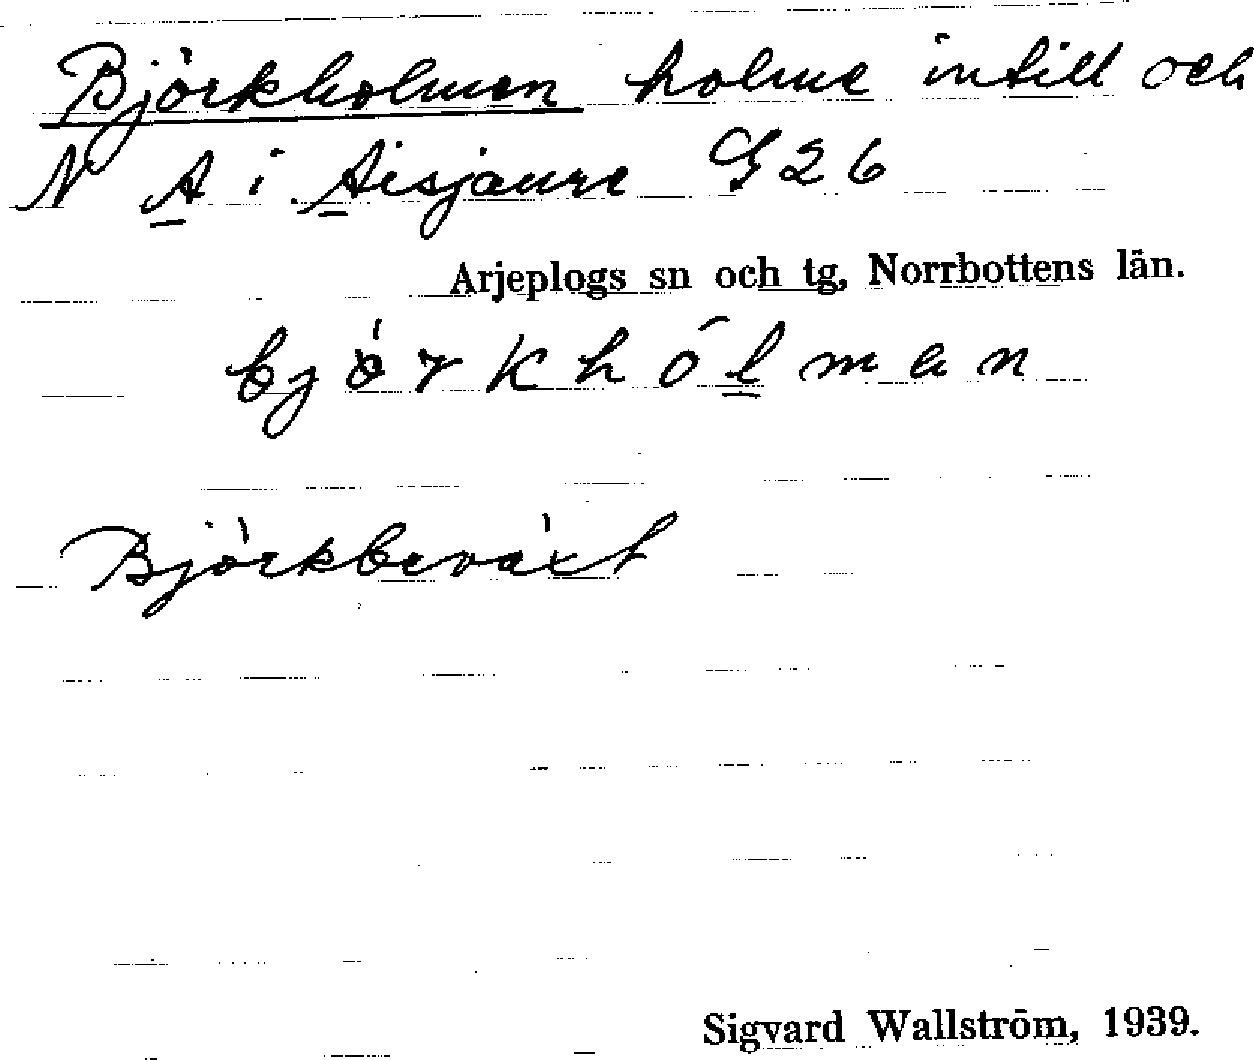 Björkholmen holme intill och
N A i Aisjaure G26
Arjeplogs sn och tg, Norrbottens län.
björkhólman
Björkbeväxt
Sigvard Wallström, 1939.